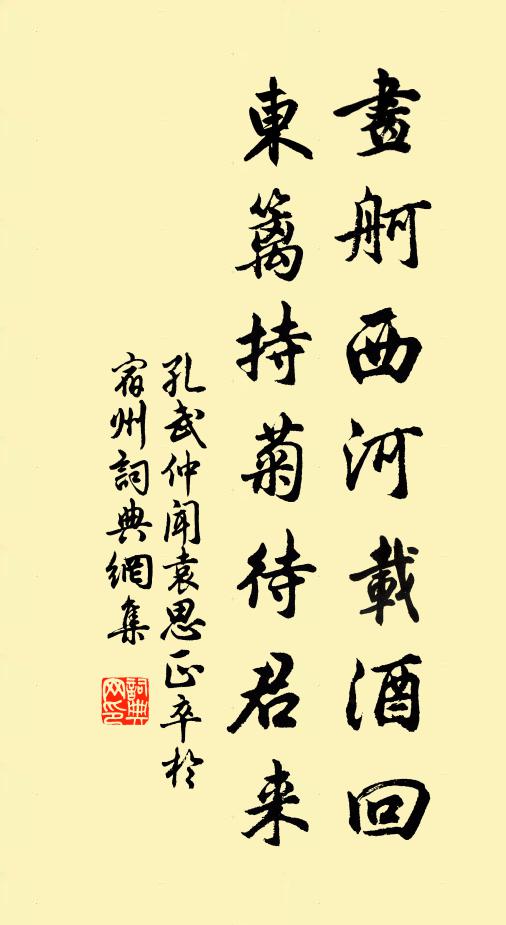 畫舸西河載酒回
東篱持菊待君来
孔武仲闻袁思正卒於
宿州詞典網集
詞典网印